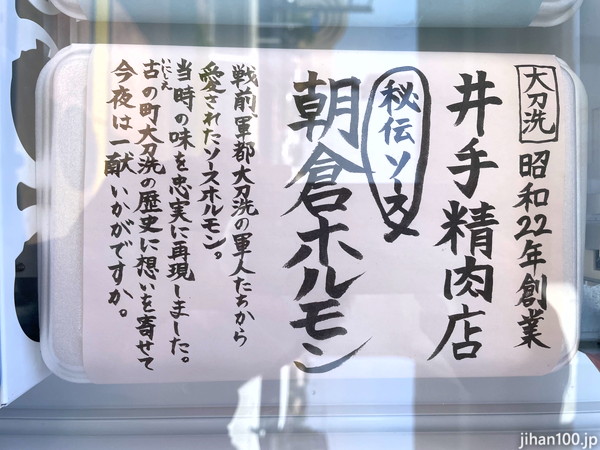 大刀洗 昭和22年創業
井手精肉店
秘伝ソース
朝倉ホルモン
戦前、軍都大刀洗の軍人たちから
愛されたソースホルモン。
当時の味を忠実に再現しました。
古の町大刀洗の歴史に想いを寄せて
いにしえ
今夜は一献いかがですか。
jihan100.jp